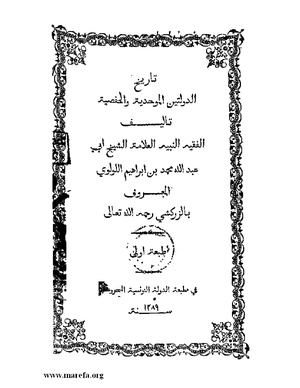 تاريخ
الدولتين الموحدية والحفصية
تاليف
الفقيه النبيه العلامة الشيخ ابي
عبد الله محمد بن ابراهيم اللولوي
المعروف
بالزركشي رحمه الله تعالى
طبعة اولى
في مطبعة الدولة التونسية المحروسة
سنة
١٢٨٩
www.marefa.org